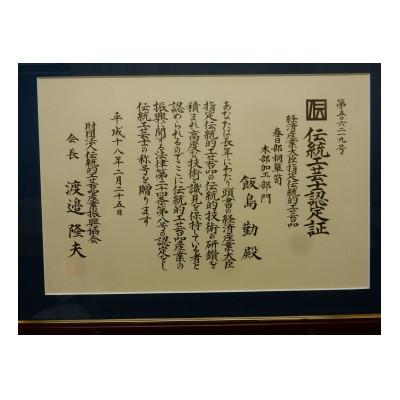 第五六二九号
伝統工芸士認定証
経済産業大臣指定伝統的工芸品
春日部桐簞笥
木部加工部門
飯島勤殿
あなたは長年にわたり頭書の経済産業大臣
指定伝統的工芸品の伝統的技術の研鑽を
積まれ高度な技術と識見を保持している者と
認められるのでここに伝統的工芸品産業の
振興に関する法律第二十四条第八号の認定をし
伝統工芸士の称号を贈ります
平成十八年二月二十五日
財団法人伝統的工芸品産業振興協会
会長 渡邉隆夫